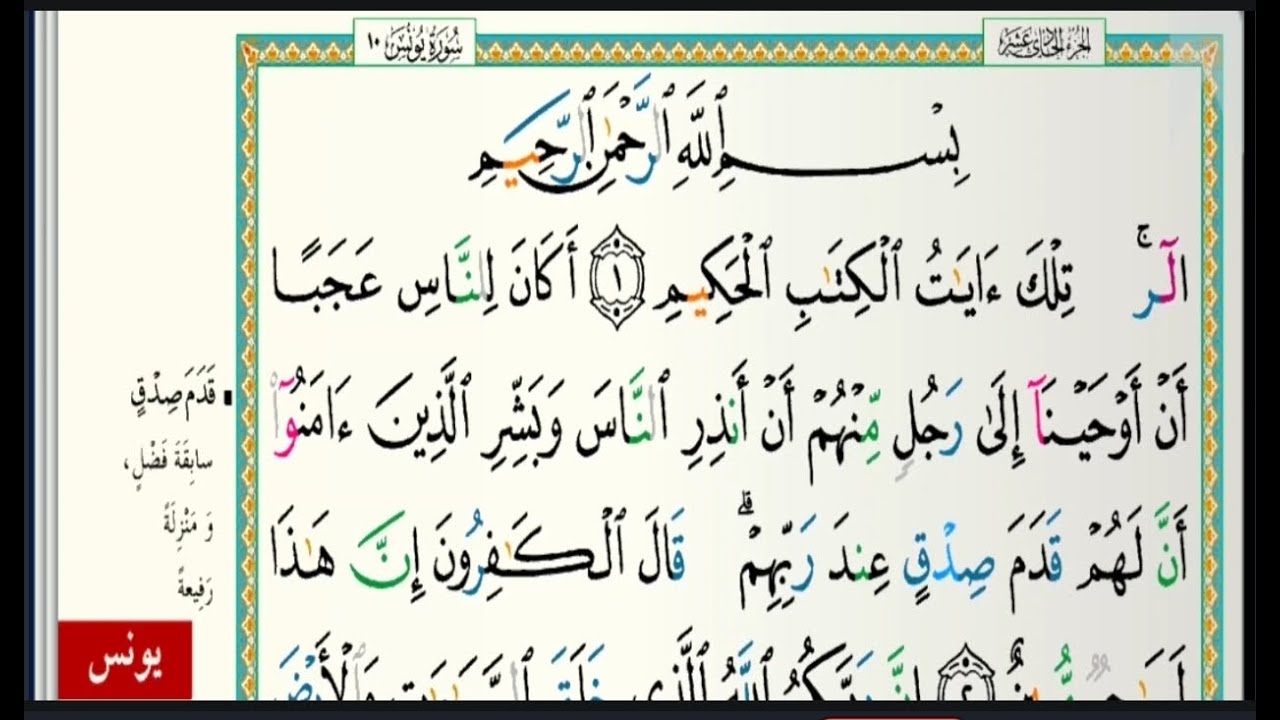 الجزء الحادى عشر
سورة يونس ١٠
بِسْمِ ٱللَّهِ ٱلرَّحْمَٰنِ ٱلرَّحِيمِ
الٓرۚ تِلْكَ ءَايَٰتُ ٱلْكِتَٰبِ ٱلْحَكِيمِ ١ أَكَانَ لِلنَّاسِ عَجَبًا
أَنْ أَوْحَيْنَآ إِلَىٰ رَجُلٍ مِّنْهُمْ أَنْ أَنذِرِ ٱلنَّاسَ وَبَشِّرِ ٱلَّذِينَ ءَامَنُوٓا۟
أَنَّ لَهُمْ قَدَمَ صِدْقٍ عِندَ رَبِّهِمْ ۗ قَالَ ٱلْكَٰفِرُونَ إِنَّ هَٰذَا
٢ إِنَّ رَبَّكُمُ ٱللَّهُ ٱلَّذِى خَلَقَ
قَدَمَ صِدْقٍ
سابِقَةَ فَضْلٍ،
وَ مَنْزِلَةً
رَفِيعةً
يونس